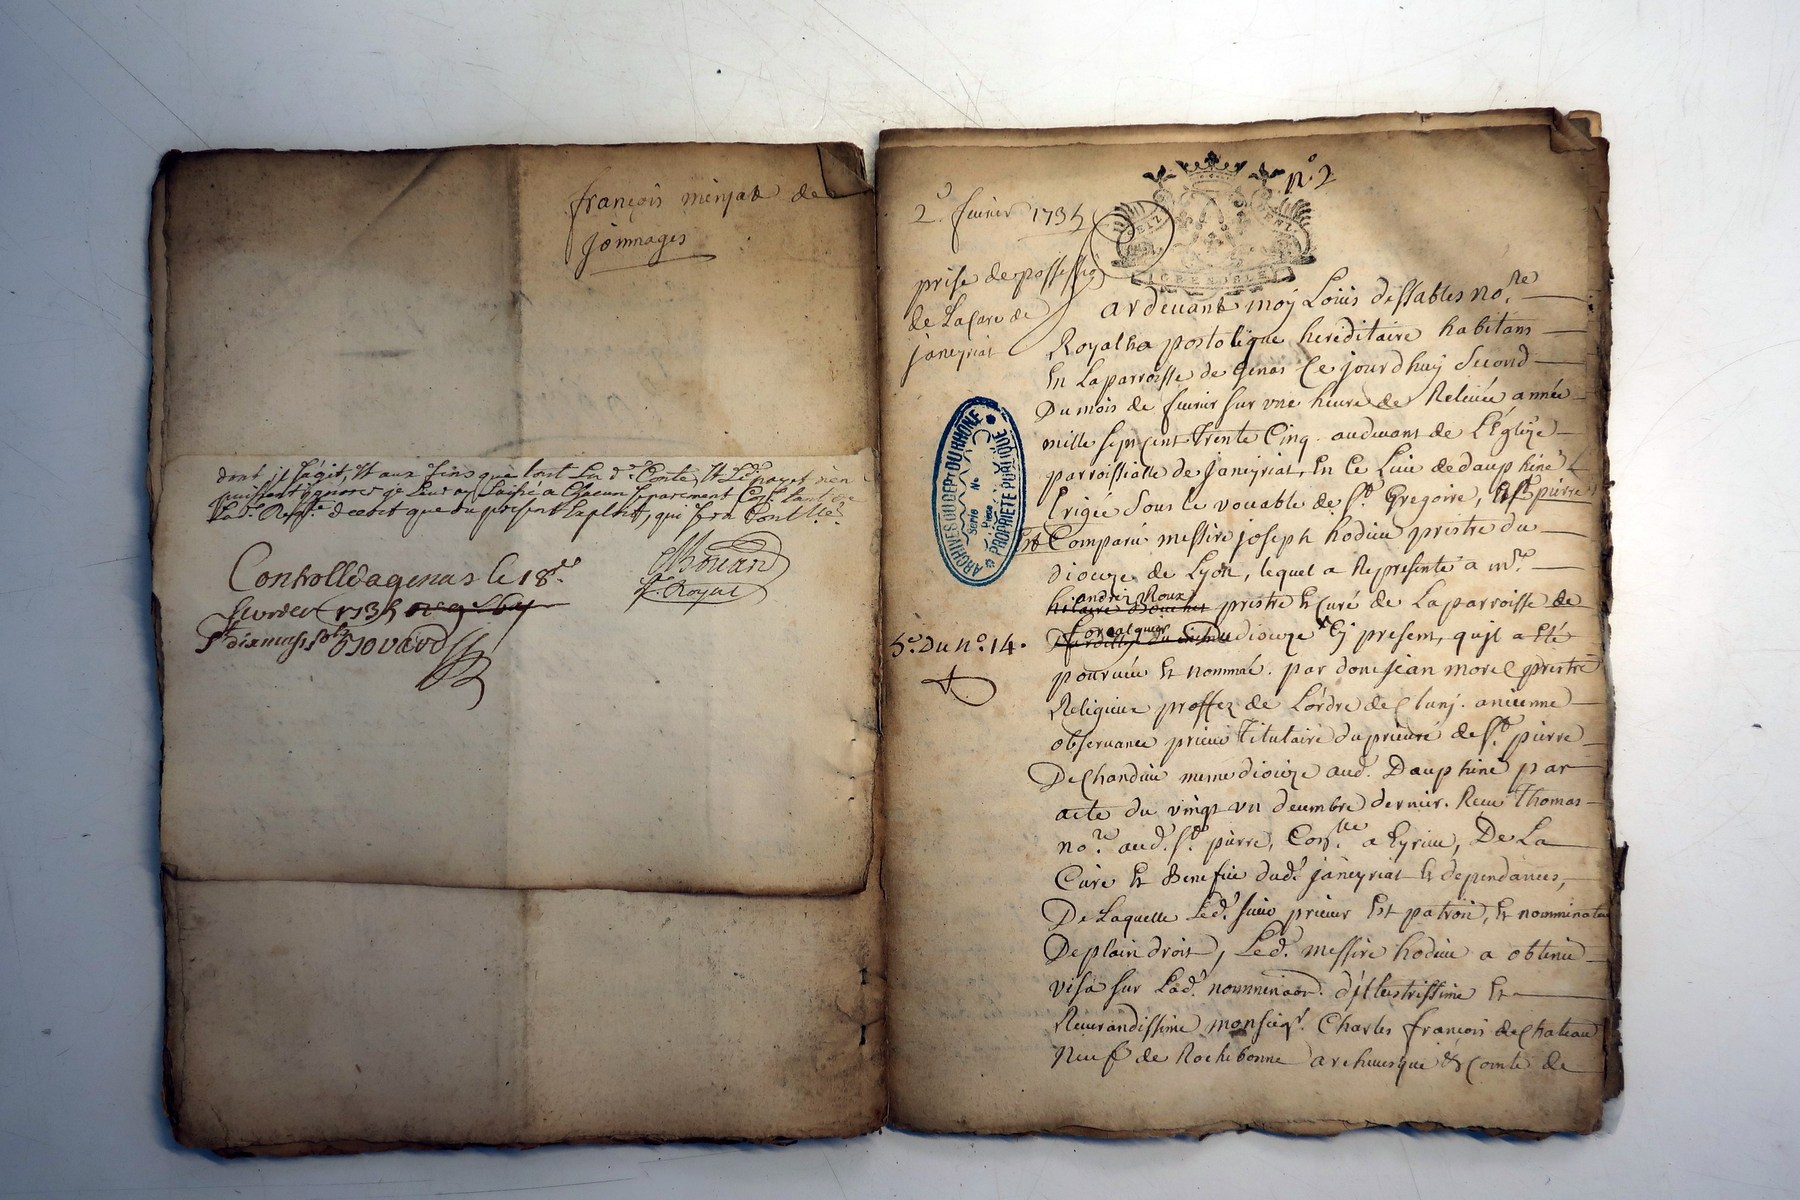 françois menjat de
jonnages
dont il s'agit, Et aux fins que lesd Sr d. Conte, Et Ld. payet n'en
puissent ignorer je leur ay laissé a Chacun separement Cop. tant de
Lad. Reqte. decret que du present Exploit, qui sera Contllé.
Royal
Controllé a genas le 18e.
feuvrier 1735
St dix neuf sols
n.° 2
2e. fevrier 1735
prise de possession
de La Cure de
janeyriat
GRENOBLE
Pardevant moy Loüis dessables nore.
Royal ha postolique hereditaire habitans
En La parroisse de Genas Ce jourdhuy Second
Du mois de fevrier sur vne heure de Relevée année
mille sept Cent Trente Cinq. audevant de L'Églize
parroissialle de janeyriat, En Ce Lieu de dauphiné
Erigée Sous le vouable de St. Gregoire, Est pierre
Est Comparu messire joseph hodieu prestre du
dioceze de Lyon, lequel a Représenté a mre.
andré Roux
hilaire Bouchet prestre Et Curé de La parroisse de
forcalquier
dioceze Cy present, qu'jl a Eté
5e. Du no. 14.
pourveu Et nommé. par dom jean morel prestre
Religieux proffez de L'ordre de Cluny. ancienne
observance prieur Titulaire du prieuré de St. pierre
De Chandieu meme dioceze aud. Dauphiné par
acte du vingt vn decembre dernier. Receu Thomas
nore. aud. St. pierre, Conllé. a Eyrieu, De La
Cure Et Benefice dud. janeyriat Et dependances,
De Laquelle Led. sieur prieur Est patron, Et nomminateur
De plain droit, Led. messire hodieu a obtenu
visa sur Lad. nomminaon. d'jllustrissime Et
Reverandissime monseigr. Charles françois de Chateau
Neuf de Rochebonne archevesque & Comte de
ARCHIVES DU DEPT DU RHÔNE
Série No
Pièce
PROPRIÉTÉ PUBLIQUE